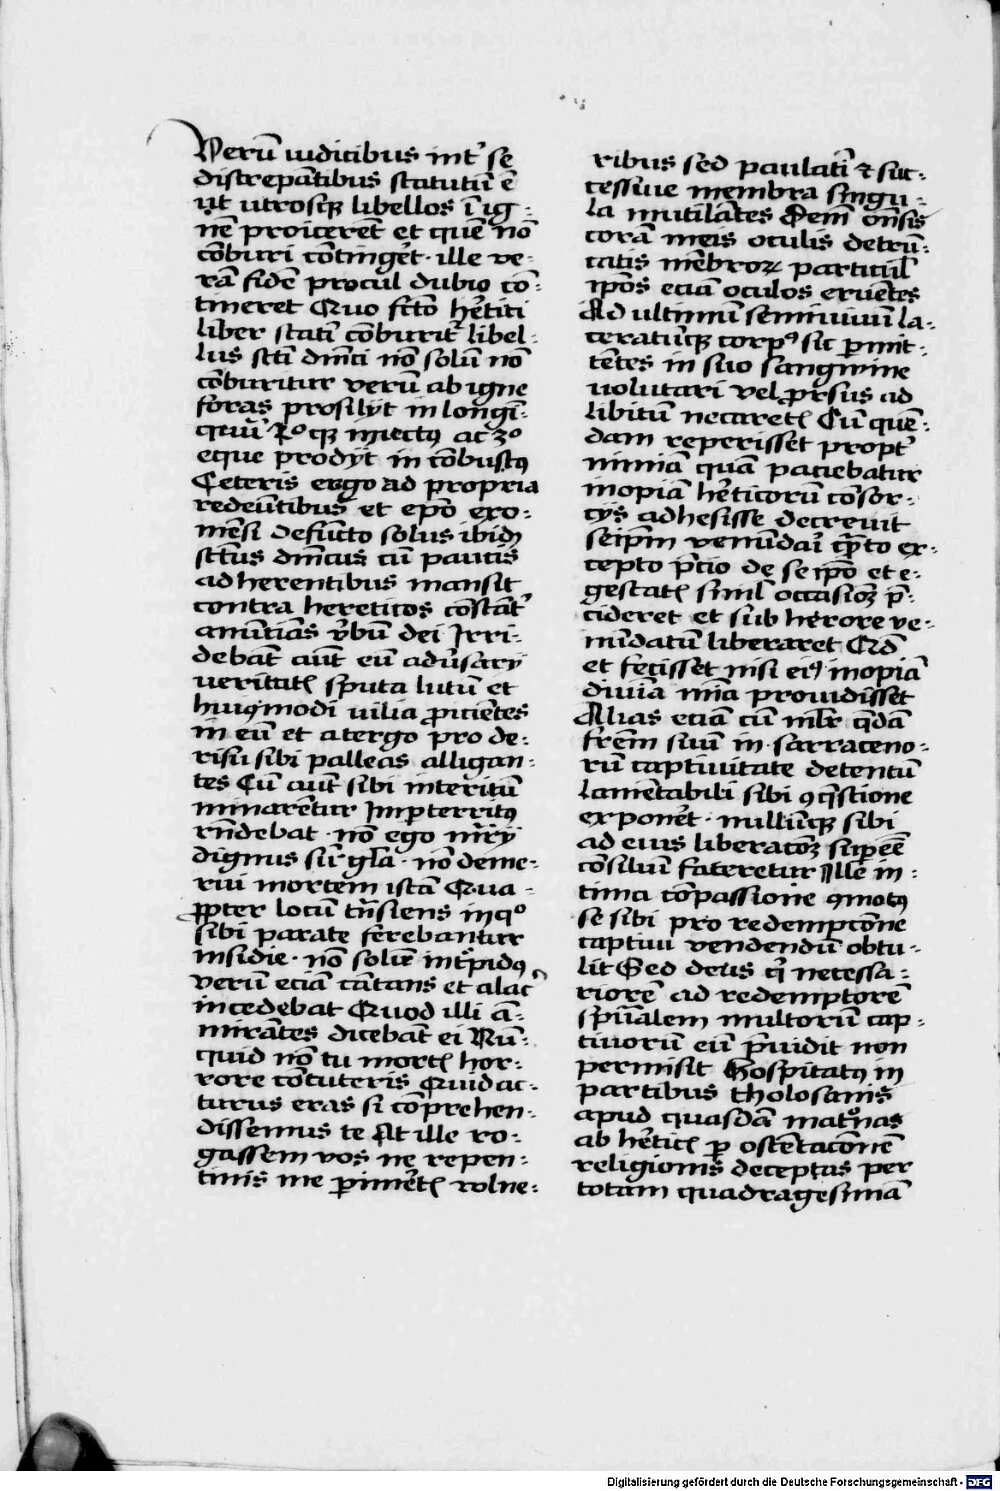 Verū iudicibus int' se
discrepātibus statutū ē
ut utrosq; libellos ī ig-
nē proicerēt et quē nō
cōburi cōtinget · ille ve-
rā fidē procul dubio cō-
tineret Quo fcto hetici
liber statī cōburit libel-
lus scti dnici nō solū nō
cōburitur verū ab igne
foras prosilyt in longī-
eque prodyt in cōbustꝯ
Ceteris ergo ad propria
redeūtibus et epō exo-
mēsi defūcto solus ibidē
sctūs dnīcus cū paucis
adherentibus mansit
contra hereticos cōstāt'
anūtiās vbū dei Irri-
debāt aūt eū adūsarȳ
veritatꝭ sputa lutū et
huiꝯmodi vilia ꝓicietes
in eū et a tergo pro de-
risu sibi palleas alligan-
tes Cū aūt sibi interitū
minarētur Imꝑterritꝯ
rn̄debat · nō ego mr̄ȳ
dignus sū gl̄a · nō deme-
rui mortem istā Qua-
ꝓpter locū trn̄siens in qͦ
sibi parate ferebantur
insidie · nō solū int'pidꝯ
verū eciā cātans et alac'
incedebat Quod illi ā-
mirātes dicebāt ei Nū-
quid nō tu mortꝭ hor-
rore cōcuteris Quid ac-
turus eras si cōprehen-
dissemus te At ille ro-
gassem vos ne repen-
tinis me ꝑimetꝭ volne-
ribus sed paulatī ⁊ suc-
cessiue membra singu-
la mutilātes Dem̄ on̄sis
corā meis oculis detrū-
catis mēbroꝝ particul'
ipōs eciā oculos eruētes
Ad ultimū semiuiuū la-
ceratūq; corpꝯ sic ꝑmit-
tētes in suo sangwine
volutari vel ꝓrsus ad
libitū necaretꝭ Cū quē-
dam reperisset propt'
nimiā quā paciebatur
inopiā heticorū cōsor-
cȳs adhesisse decreuit
seipm̄ venūdari ꝑto ex-
cepto p̄cio de se ipō et e-
gestatꝭ siml' occasioꝫ p̄-
cideret et sub herrore ve-
nūdatū liberaret Qd̄
et fecisset nisi eiꝯ inopiā
diuīa mīa prouidisset
Alias eciā cū mlr̄ qdā
frēm suū in sarraceno-
rū captiuitate detentū
lamētabili sibi ꝯq̄stione
exponet · nullūq; sibi
ad eius liberacōꝫ sup̄eē
cōsiliū fateretur Ille in-
tima cōpassione ꝯmotꝯ
se sibi pro redempcōne
captiui vendendū obtu-
lit Sed deus q̄ necessa-
riorē ad redemptorē
spūalem multorū cap-
tiuorū eū p̄uidit non
permisit Hospitatꝯ in
partibus tholosanis
apud quasdā mat'nas
ab heticꝭ ꝑ ostētacōnē
religionis deceptas per
totam quadragesimā
Digitalisierung gefördert durch die Deutsche Forschungsgemeinschaft - DFG